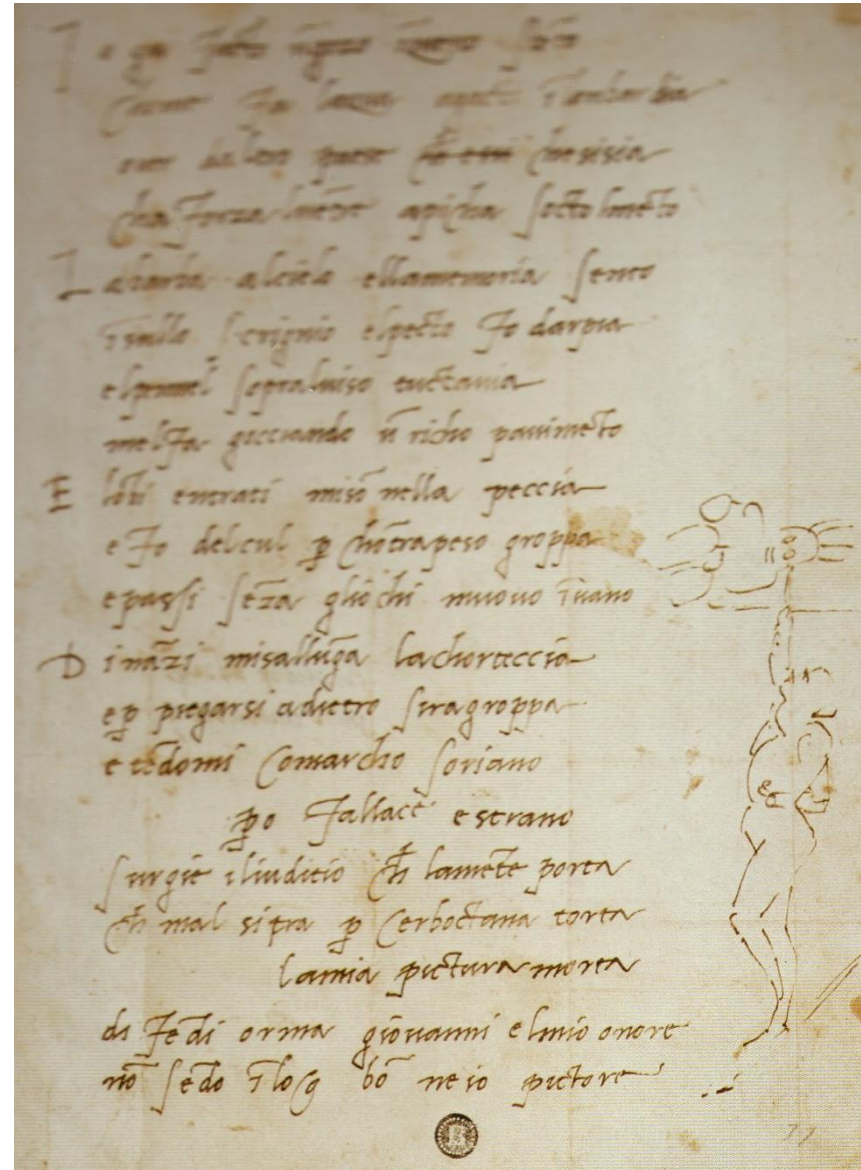 I o gia facto ūgozo īquesto stēto
chome fa lacqua agacti īlombardia
over daltro paese che sisia
cha forza lvētre apicha socto lmēto
L abarba alcielo ellamemoria sento
īsullo scrignio elpecto fo darpia
elpennel sopraluiso tuctauia
melfa gocciando ū richo pauimēto
E lōbi entrati misō nella peccia
e fo delcul p̄ chōtrapeso groppa
epassi sēza gliochi muouo īuano
D ināzi misallūga lachorteccia
ep̄ piegarsi adietro siragroppa
e tēdomi comarcho soriano
p̄o fallace e strano
surgie iliuditio ch̄ lamēte porta
ch̄ mal sitra p̄ cerboctana torta
lamia pictura morta
di fēdi orma giouanni elmio onore
nō sēdo ī log bō ne io pictore